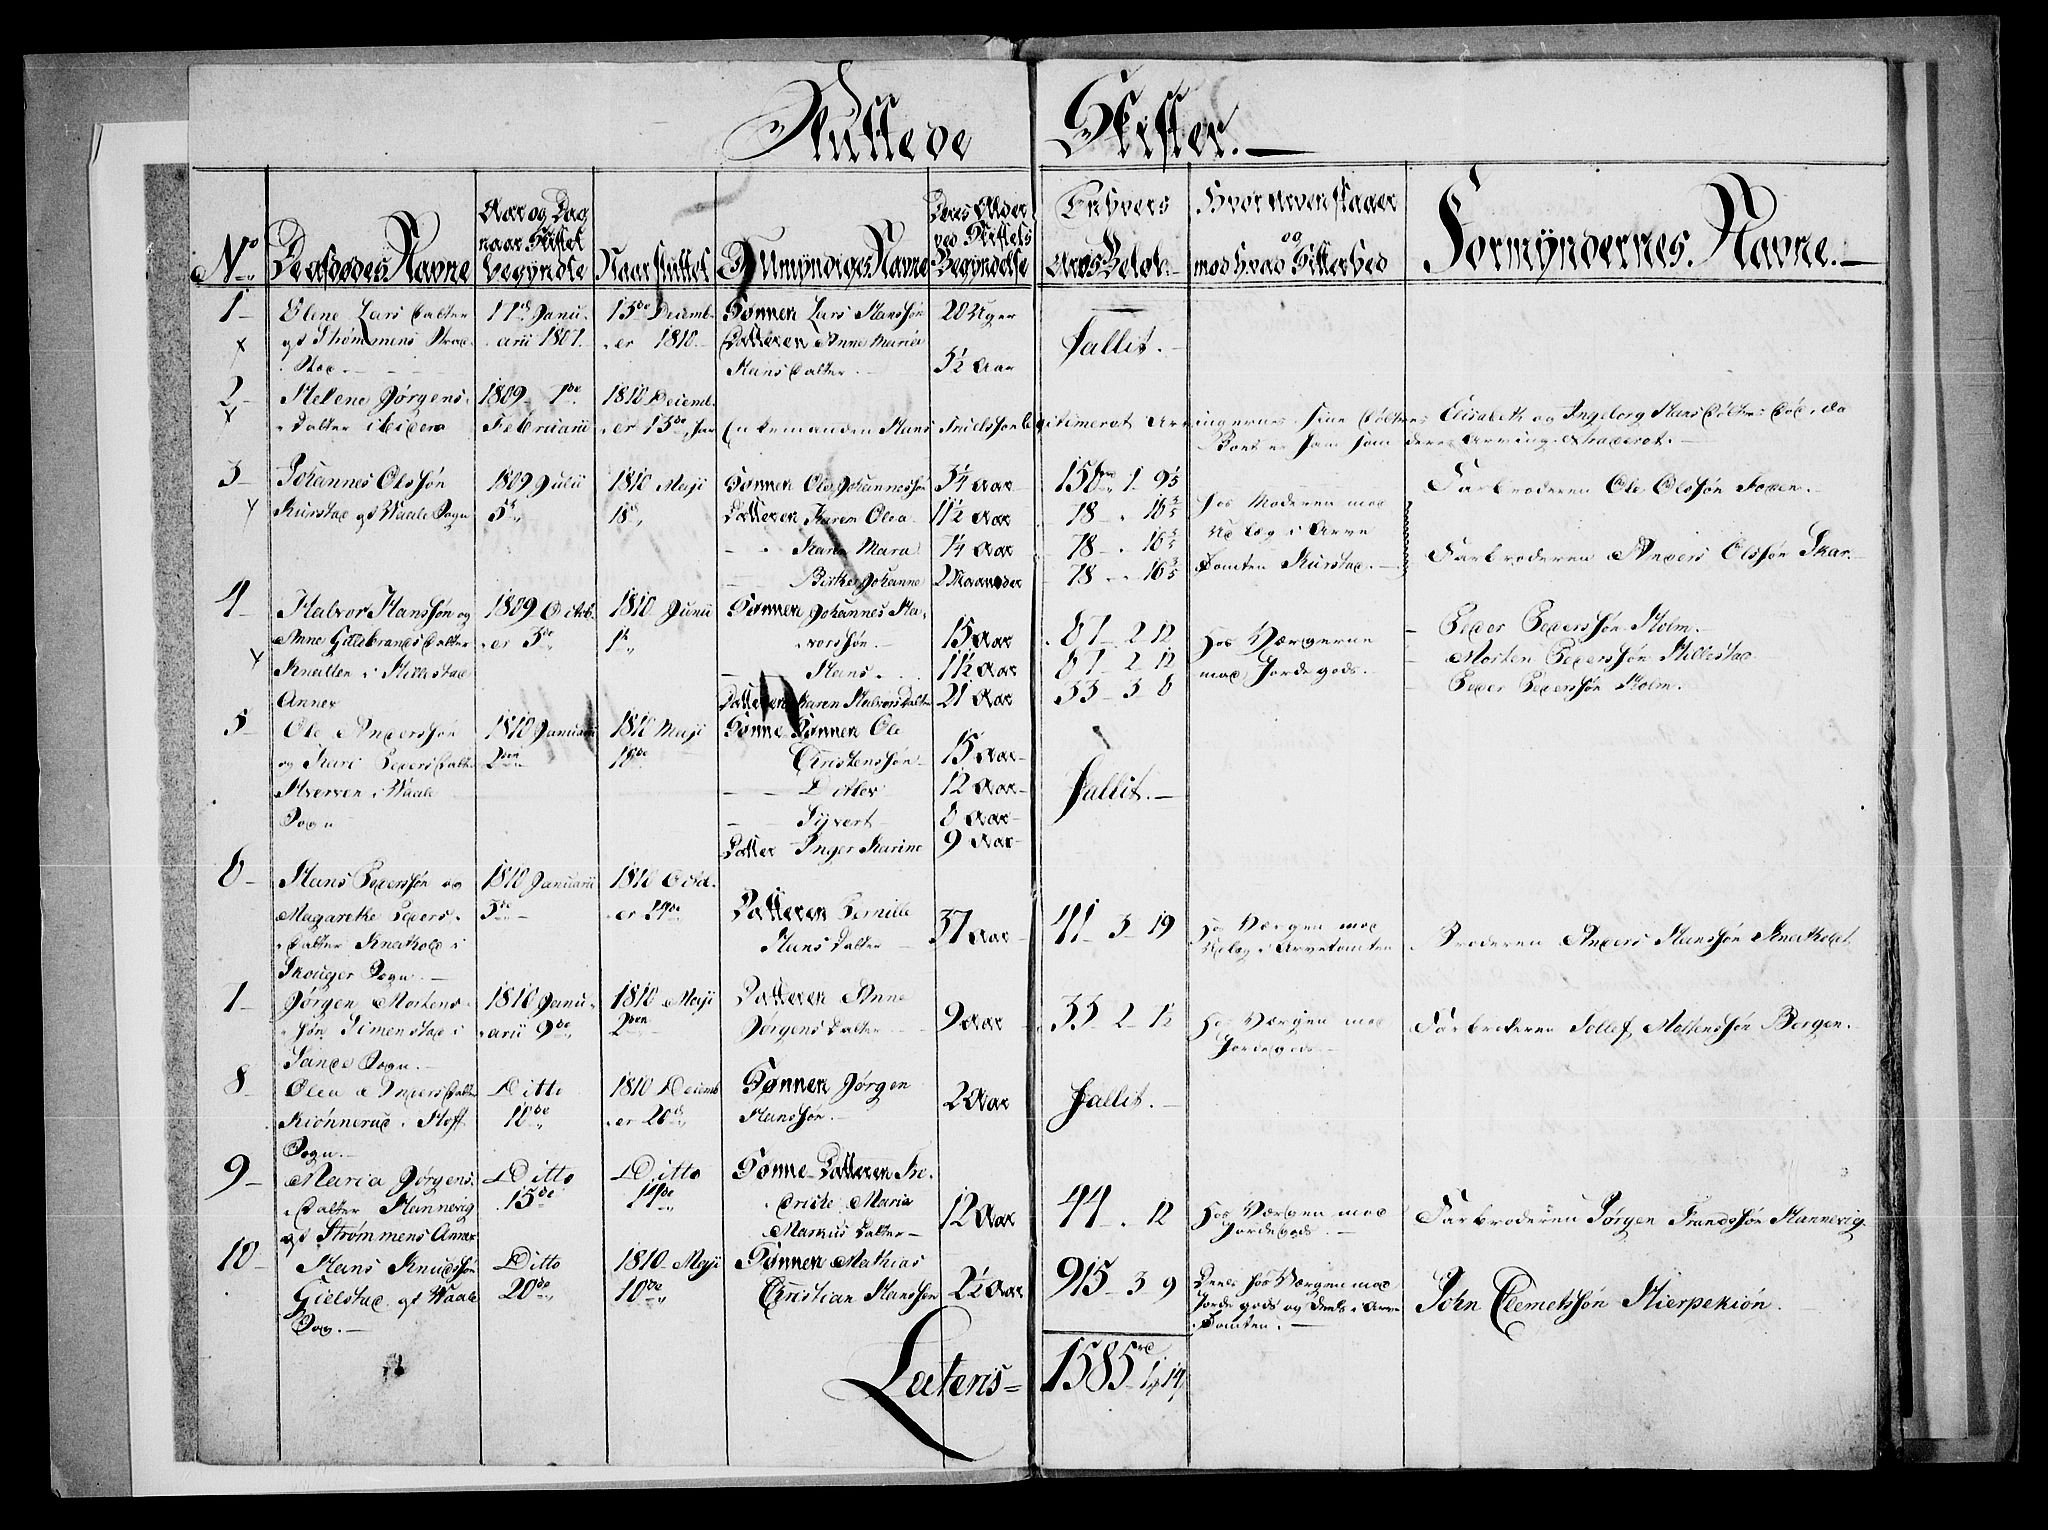 Sluttede Skifter.
No
Den Afdødes Navne
Aar og Dag
naar Skiftet
begyndte
Naar sluttet
D Umyndiges Navne
Deres Alder
ved Skiftets
Begyndelse
Enhvers
Arvs Beløb.
Hvor Arven staaer
og
mod hvad Sikkerhed
Formyndernes Navne.
1
Olene Lars Datter
af Strømmens
17de Janu-
arii 1807.
15de Decemb-
er 1810.
Sønnen Lars Hanssøn
Datteren Anne Maria
Hans Datter.
20 Uger
5½ Aar
Fallit.
2
Helene Jørgens-
Datter i Eidem
1809 1de
Februarii
1810 Decemb-
er 15de, har
Enkemanden Hans legitimeret Arvingernes, sine Døttres Elisabeth og Ingeborg Hans Døttres Død, da
Boet er ham som deres Arving extraderet.
3
Johannes Olssøn
Kurstad af Waale Sogn
1809 Julii
5te
1810 Maji
18de
Sønnen Ole Johannessøn
Datteren Karen Olea
Karen Mara
Birthe Johanne
3¼ Aar
11½ Aar
7¼ Aar
2 Maaneder
156 1 9⅗
78 - 16⅘
78 - 16⅘
78 - 16⅘
hos Moderen mod
Udlæg i Arve
Tomten Kurstad.
Farbroderen Ole Olssøn Foxen.
Farbroderen Anders Olssøn Skar.
4
Halvor Hanssøn og
Anne Guldbrands Datter
Knatten i Hillestad
Annex
1809 Octob-
er 3de
1810 Junii
1te
Sønnen Johannes Hal-
vorssøn.
Hans.
Datteren Karen Halvors Datter
15 Aar
11½ Aar
21 Aar
67 - 2 12
67 - 2 12
33 - 3 8
hos Værgerne
mod Jordegods.
Peder Pederssøn Holm.
Morten Pederssøn Hillestad
Peder Pederssøn Holm.
5
Ole Anderssøn
og Kari Peders Datter
Hverven i Waale
Sogn
1810 Januarii
2den
1810 Maji
18de
Sønne Sønnen Ole
Christenssøn
Ditlev
Syvert
Datter Inger Karine
15 Aar
12 Aar
8 Aar
9 Aar
Fallit.
6
Hans Pederssøn og
Magarethe Peders-
Datter Knatholt i
Skouger Sogn.
1810 Januarii
3de
1810 Octob-
er 24de
Datteren Pernille
Hans Datter
37 Aar
41 - 3 19
hos Værgen mod
Udlæg i Arvetomten
Broderen Anders Hanssøn Knatholt
7
Jørgen Mortens-
søn Simenstad i
Sande Sogn.
1810 Janu-
arii 9de
1810 Maji
2den
Datteren Anne
Jørgens Datter
9 Aar
33 - 2 12
hos Værgen mod
Jordegods
Farbroderen Tollef Mortenssøn Bergen.
8
Olea Anders Datter
Kiønnerud i Hoff
Sogn.
Ditto
10de
1810 Decemb-
er 20de
Sønnen Jørgen
Hanssøn.
2 Aar
Fallit.
9
Maria Jørgens-
Datter Hannevig
af Strømmens Annex
Ditto
15de
Ditto
14de
Sønne-Datteren Fre-
driche Maria
Markus Datter
12 Aar
44 - 12
hos Værgen mod
Jordegods.
Farbroderen Jørgen Frandssøn Hannevig
10
Hans Knudssøn
Gielstad af Waale
Sogn.
Ditto
20de
1810 Maji
10de
Sønnen Mathias
Christian Hanssøn
2½ Aar
915 - 3 9
Deels hos Værgen mod
Jordegods og deels i Arve
Tomten.
John Clemetssøn Hierpekiøn.
Latens =
1585 rd 1 14